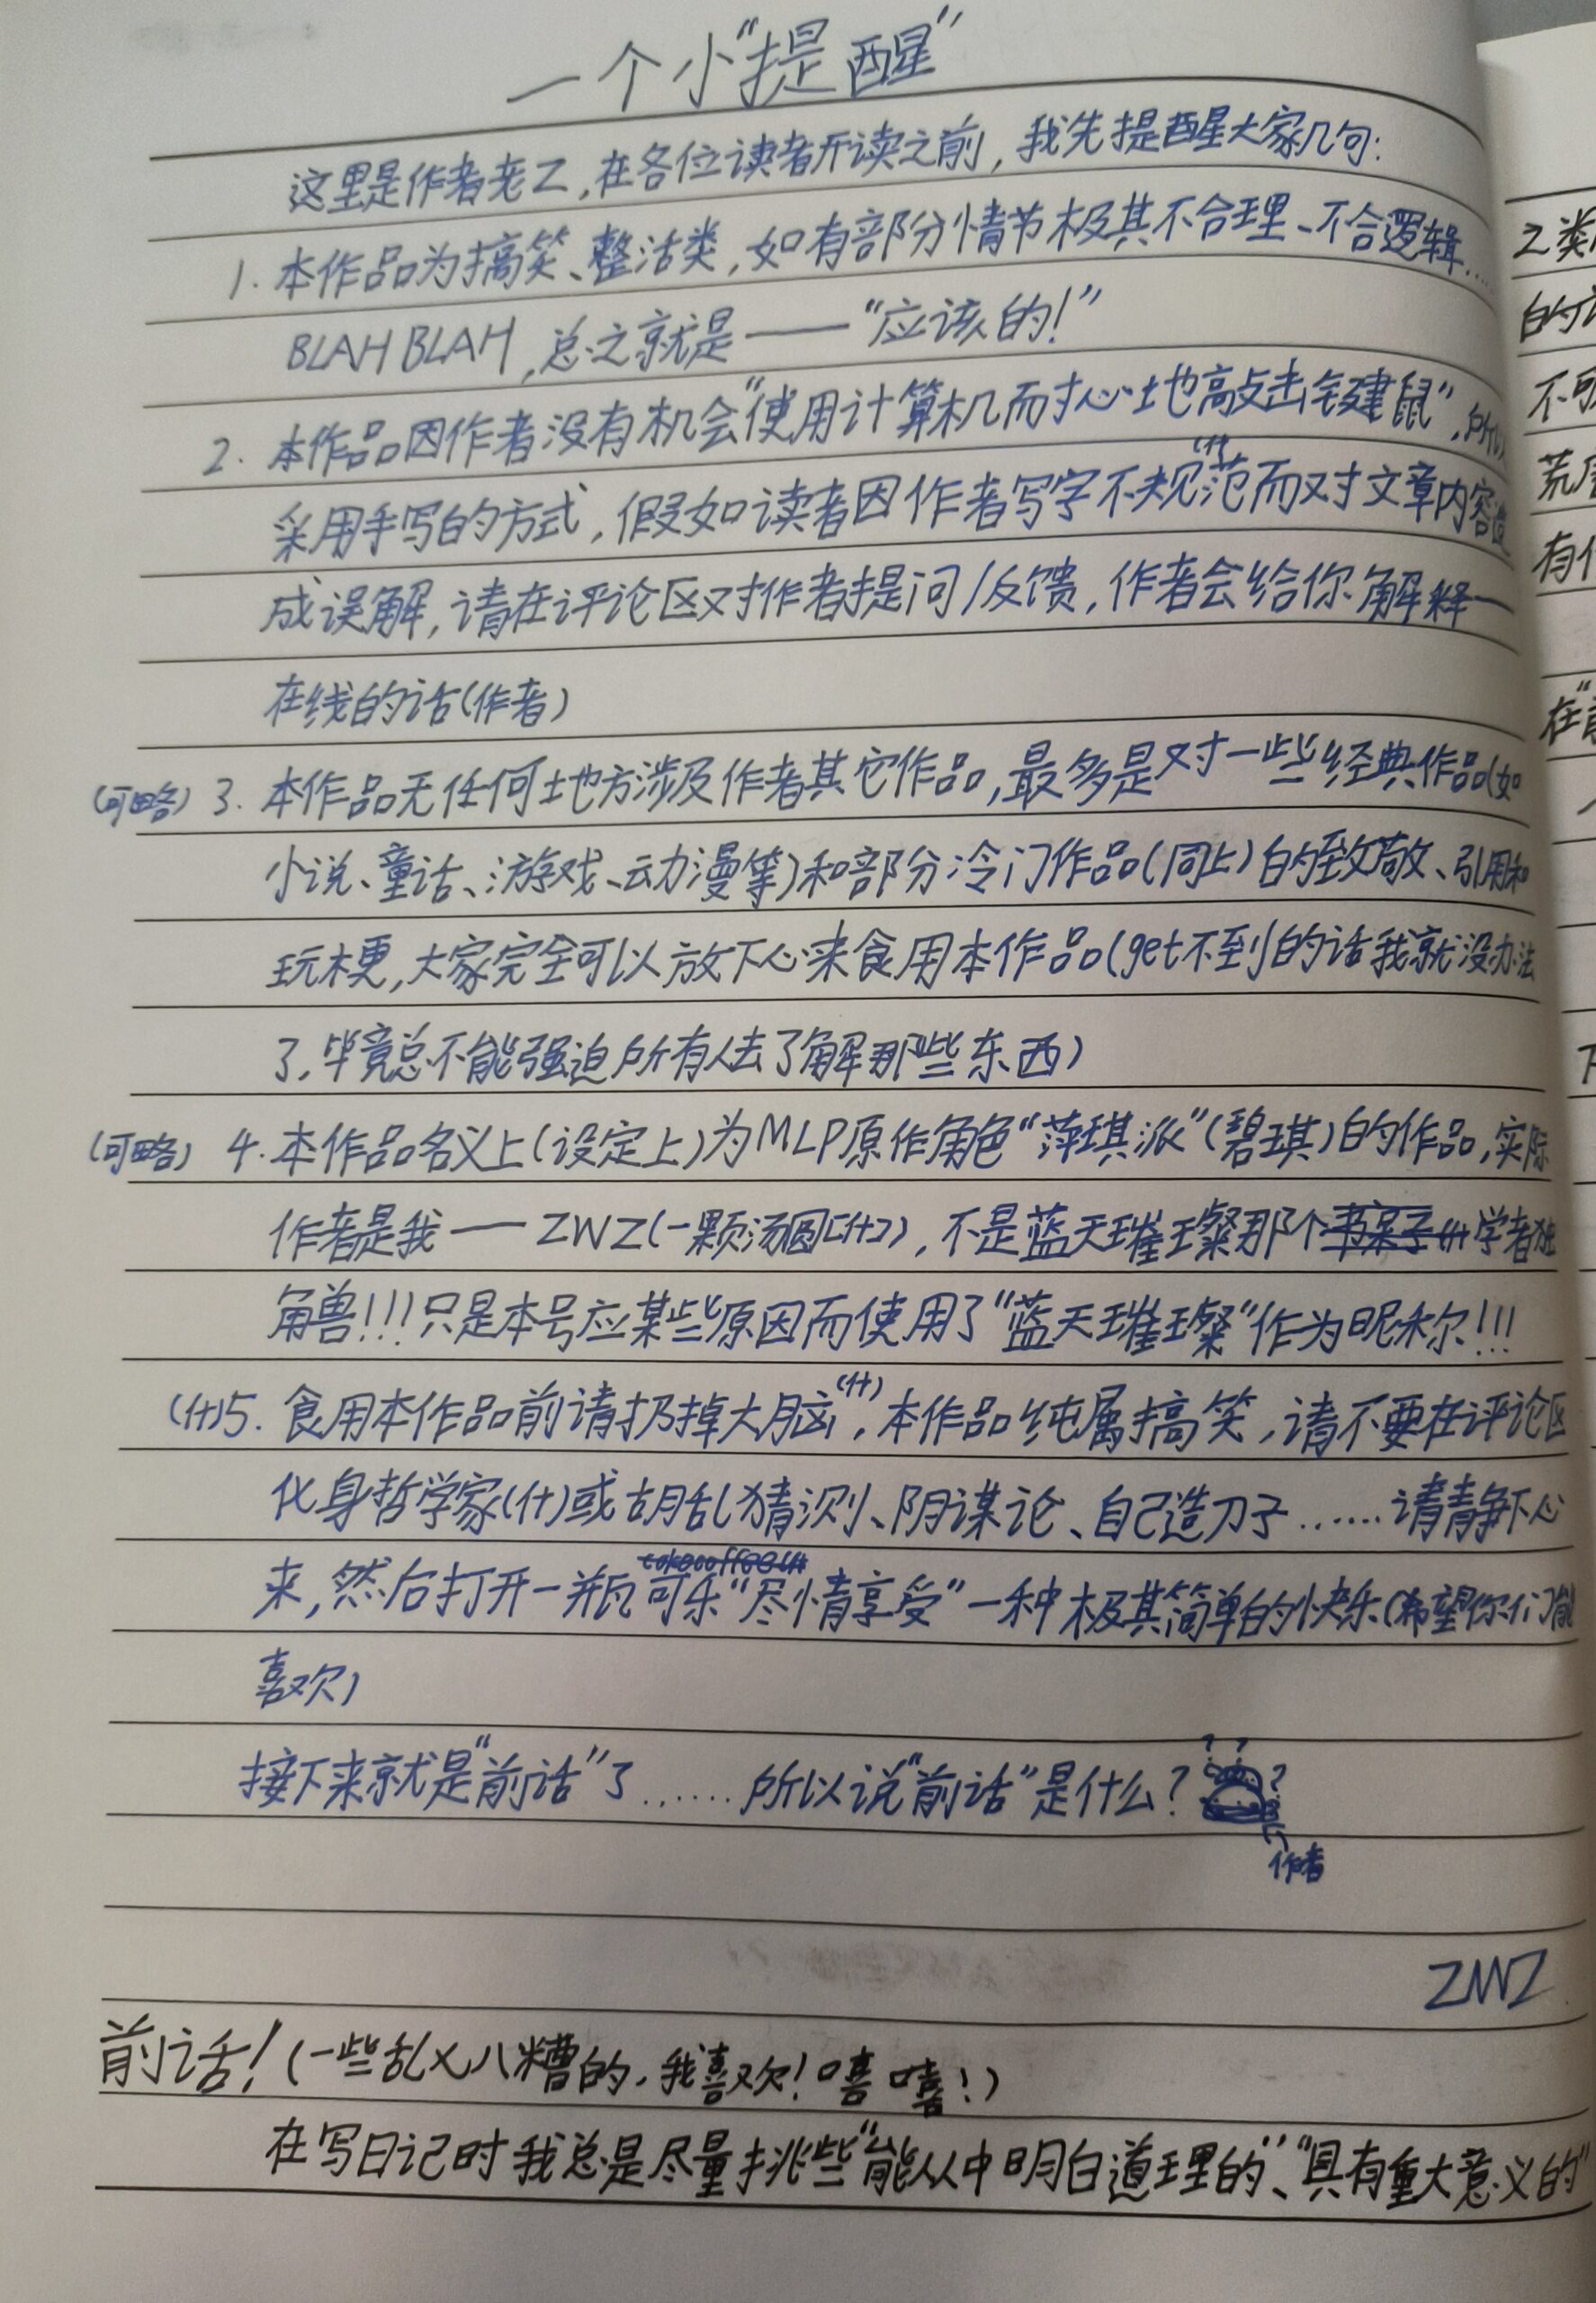 一个小“提醒”
这里是作者老乙,在各位读者开读之前,我先提醒大家几句:
1. 本作品为搞笑、整活类,如有部分情节极其不合理、不合逻辑……
BLAH BLAH,总之就是——“应该的!”
2. 本作品因作者没有机会“使用计算机而耐心地敲击键鼠”,所以
采用手写的方式,假如读者因作者写字不规范(什)而对文章内容造
成误解,请在评论区对作者提问/反馈,作者会给你解释—
在线的话(作者)
(可略) 3. 本作品无任何地方涉及作者其它作品,最多是对一些经典作品(如
小说、童话、游戏、动漫等)和部分冷门作品(同上)的致敬、引用和
玩梗,大家完全可以放下心来食用本作品(get不到的话我就没办法
了,毕竟总不能强迫所有人去了解那些东西)
(可略) 4. 本作品名义上(设定上)为MLP原作角色“萍琪派”(碧琪)的作品,实际
作者是我——ZWZ(一颗汤圆[什]),不是蓝天璀璨那个书呆子(什学者独
角兽!!!只是本号应某些原因而使用了“蓝天璀璨”作为昵称!!!
(什)5. 食用本作品前请扔掉大脑(什),本作品纯属搞笑,请不要在评论区
化身哲学家(什)或胡乱猜测、阴谋论、自己造刀子……请静下心
来,然后打开一瓶可乐“尽情享受”一种极其简单的快乐(希望你们能
喜欢)
接下来就是“前话”了……所以说“前话”是什么?
? ? ?
作者
ZWZ
前话!(一些乱七八糟的,我喜欢!嘻嘻!)
在写日记时我总是尽量挑些“能从中明白道理的”、“具有重大意义的”
乙类
的
不可
荒
有
在“